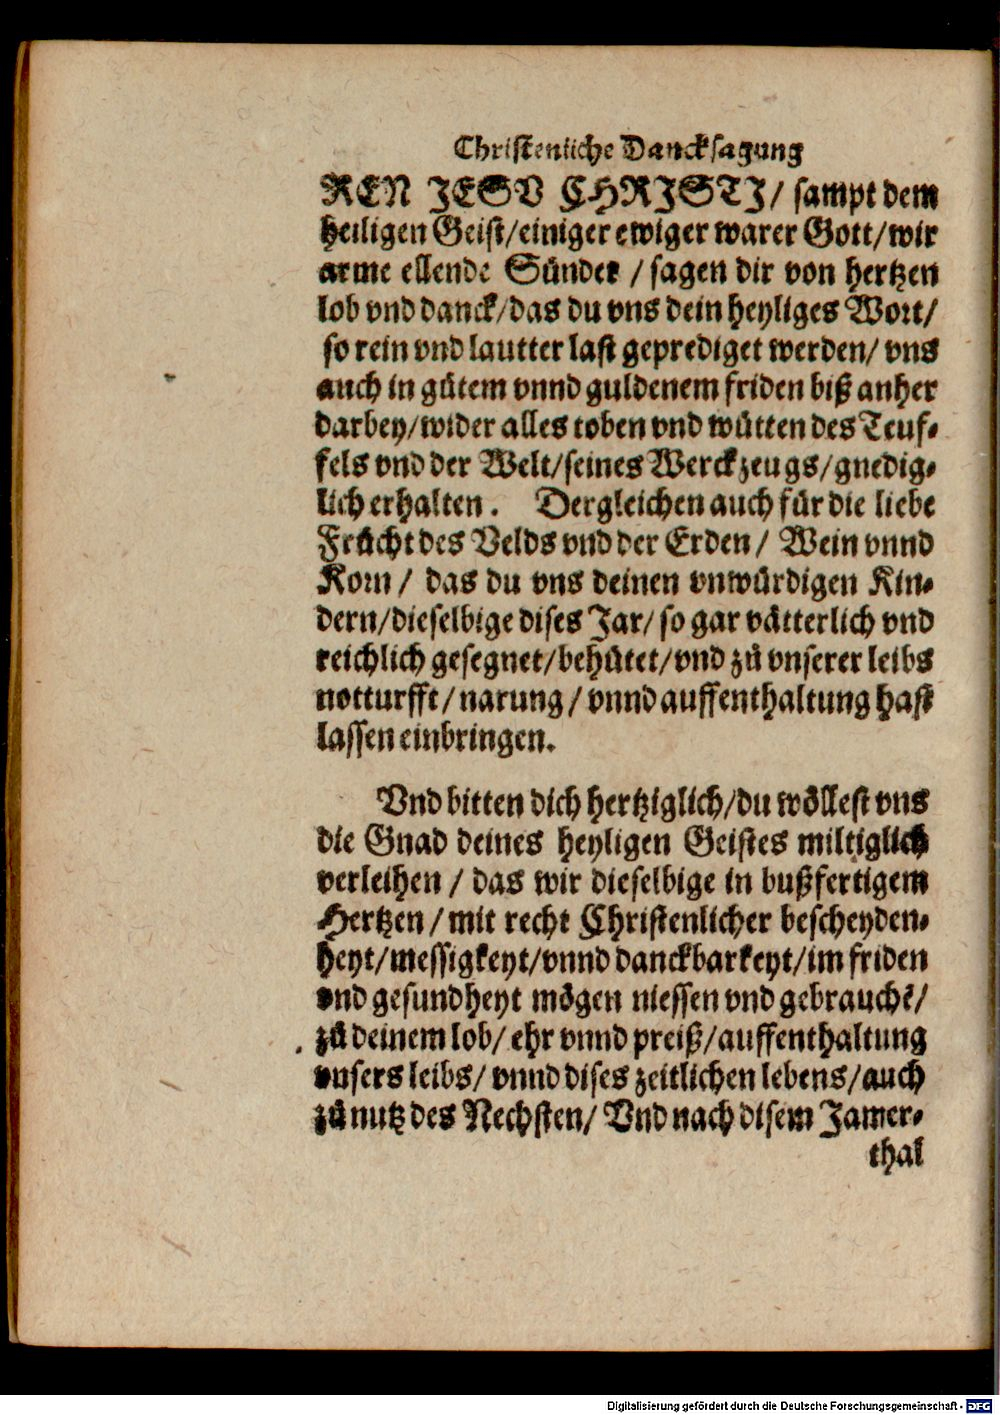 Christenliche Dancksagung
REN JESV CHRISTI/ sampt dem
heiligen Geist/einiger ewiger warer Gott/wir
arme ellende Sünder / sagen dir von hertzen
lob vnd danck/das du vns dein heyliges Wort/
so rein vnd lautter last geprediget werden/ vns
auch in gůtem vnnd guldenem friden biß anher
darbey/wider alles toben vnd wütten des Teuf-
fels vnd der Welt/seines Werckzeugs/gnedig-
lich erhalten. Dergleichen auch für die liebe
Frücht des Velds vnd der Erden/ Wein vnnd
Korn/ das du vns deinen vnwürdigen Kin-
dern/dieselbige dises Jar/ so gar vätterlich vnd
reichlich gesegnet/behütet/vnd zů vnserer leibs
notturfft/narung/ vnnd auffenthaltung hast
lassen einbringen.
Vnd bitten dich hertziglich/du wöllest vns
die Gnad deines heyligen Geistes miltiglich
verleihen / das wir dieselbige in bußfertigem
Hertzen/mit recht Christenlicher bescheyden-
heyt/messigkeyt/vnnd danckbarkeyt/im friden
vnd gesundheyt mögen niessen vnd gebrauchē/
zů deinem lob/ ehr vnnd preiß/auffenthaltung
vnsers leibs/ vnnd dises zeitlichen lebens/auch
zů nutz des Nechsten/ Vnd nach disem Jamer-
thal
Digitalisierung gefördert durch die Deutsche Forschungsgemeinschaft - DFG